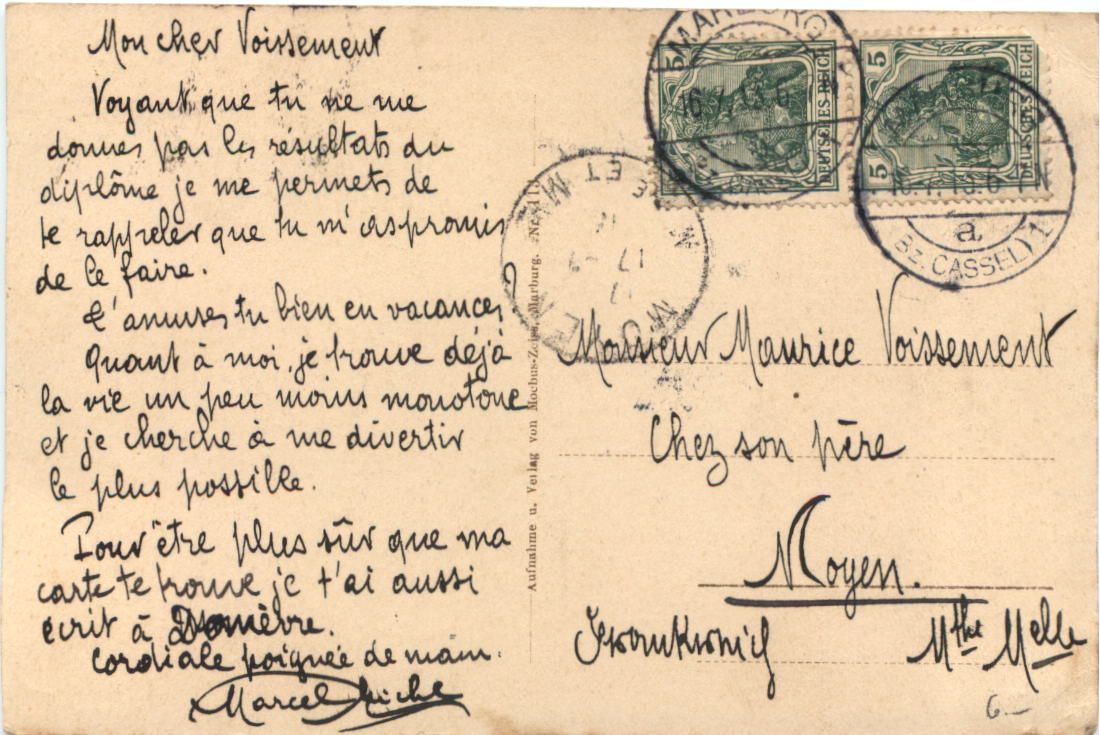 Mon cher Voissement
Voyant que tu ne me
donnes pas les résultats du
diplôme je me permets de
te rappeler que tu m'as promis
de le faire.
T'amuses tu bien en vacances?
Quant à moi, je trouve déjà
la vie un peu moins monotone
et je cherche à me divertir
le plus possible.
Pour être plus sûr que ma
carte te trouve je t'ai aussi
écrit à Domèvre.
Cordiale poignée de main.
Marcel
Aufnahme u. Verlag von Mochus-Zeiss, Marburg.
MARBURG
16.7.13.6-7N
5 DEUTSCHES REICH 5
5 DEUTSCHES REICH 5
a
Bz. CASSEL) 1
MOYEN
17-7
ET M
Monsieur Maurice Voissement
Chez son père
Moyen.
Frankreich
Mthe Melle
6-